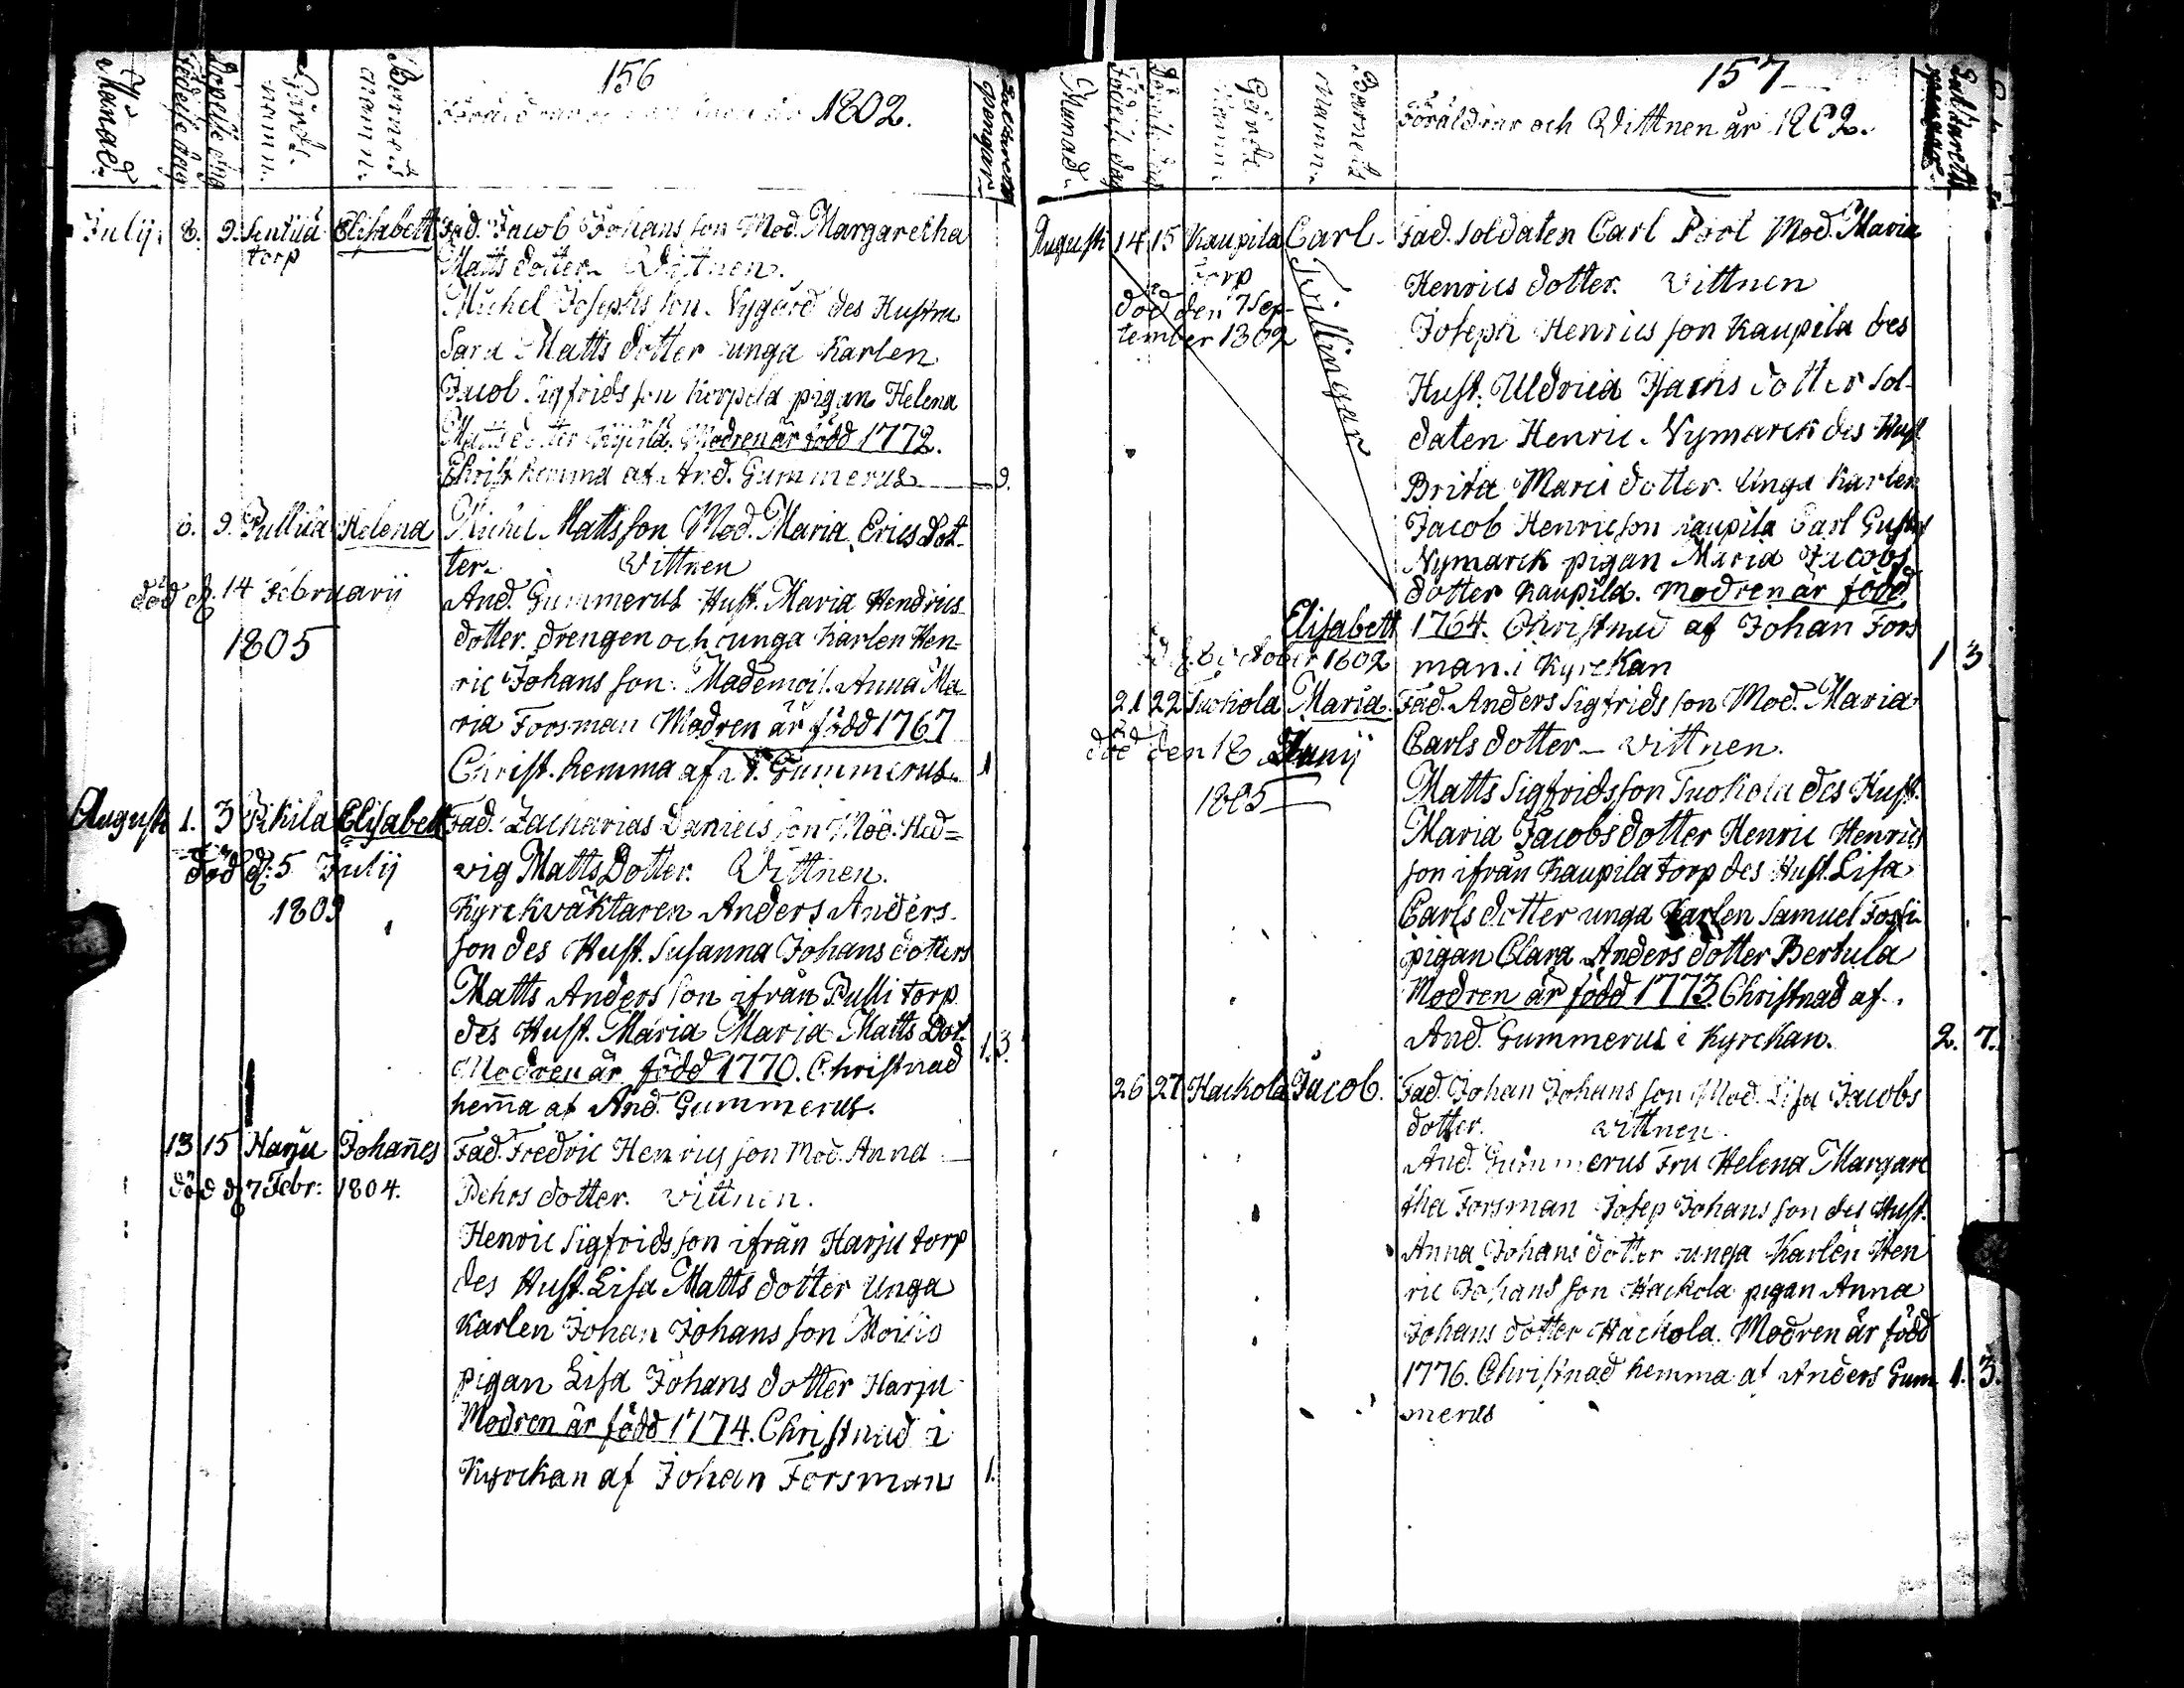 156
Månad.
Födelse dag
Döpelse dag
Gårds namn.
Barnets namn.
Föräldrar 1802.
Pengar
Julij. 8. 9. torp Elisabett Fad. Jacob Johans son Mod. Margaretha
Matts dotter. Vittnen.
Michel Josephs son Nygård des Hustru
Sara Matts dotter unga Karlen
Jacob Sigfrids son Korpela pigan Helena
Matts dotter Modren är född 1772.
Christ hemma af And. Gummerus 9.
8. 9. Pullila Helena Michel Matts son Mod. Maria Erics Dot-
ter. Vittnen
död d. 14 Februarij
1805
And. Gummerus Hust. Maria Hendrics
dotter. drengen och unga Karlen Hen-
ric Johans son. Mademois. Anna Ma
ria Forsman Modren är född 1767
Christ. hemma af A. Gummerus. 1
August 1. 3 Pikila Elisabett Fad. Zacharias Daniels son Mod. Hed=
död d. 5 Julij
1809
vig Matts Dotter. Vittnen.
Kyrckväktaren Anders Anders-
son des Hust. Susanna Johans dotters
Matts Anders son ifrån Pulli torp
des Hust. Maria Maria Matts Dot. 1. 3.
Modren är född 1770. Christnad
hem̄a af And. Gummerus.
13 15 Harju Johan̄es Fad. Fredric Henrics son Mod. Anna
död d. 7 Febr: 1804. Pehrs dotter. Vittnen.
Henric Sigfrids son ifrån Harju torp
des Hust. Lisa Matts dotter Unga
Karlen Johan Johans son Moisio
pigan Lisa Johans dotter Harju
Modren är född 1774. Christnad i
Kyrckan af Johan Forsman 1.
157
Månad.
Födelse dag
Gårds namn
Barnets namn.
Föräldrar och Vittnen år 1802.
August 14 15 Kaupila torp Carl. Fad. Soldaten Carl Mod. Maria
död den 7 Sep-
tember 1802
Tvillingar
Henrics dotter. Vittnen
Joseph Henrics son Kaupila des
Hust. Uldrica dotter Sol-
daten Henric Nymarck des Hust
Brita Marcs dotter. Unga Karlen
Jacob Henricson Kaupila Carl Gustaf
Nymarck pigan Maria Jacobs
dotter Kaupila. Modren är född
Elisabett 1764. Christnad af Johan Fors
October 1802 man i Kyrckan 1 3
21 22 Tuokola Maria. Fad. Anders Sigfrids son Mod. Maria
död den 18 Junij
1805
Carls dotter Vittnen.
Matts Sigfridsson Tuokola des Hust.
Maria Jacobs dotter Henric Henrics
son ifrån Kaupila torp des Hust. Lisa
Carls dotter unga Karlen Samuel
pigan Clara Anders dotter Bertula
Modren är född 1773. Christnad af
And. Gummerus i Kyrckan. 2. 7.
26 27 Hackola Jacob. Fad. Johan Johans son Mod. Lisa Jacobs
dotter. Vittnen.
And. Gummerus Fru Helena Margare
tha Forsman Josep Johans son des Hust.
Anna Johans dotter unga Karlen Hen
ric Johans son Hackola pigan Anna
Johans dotter Hackola. Modren är född
1776. Christnad hemma af Anders Gum 1. 3.
merus